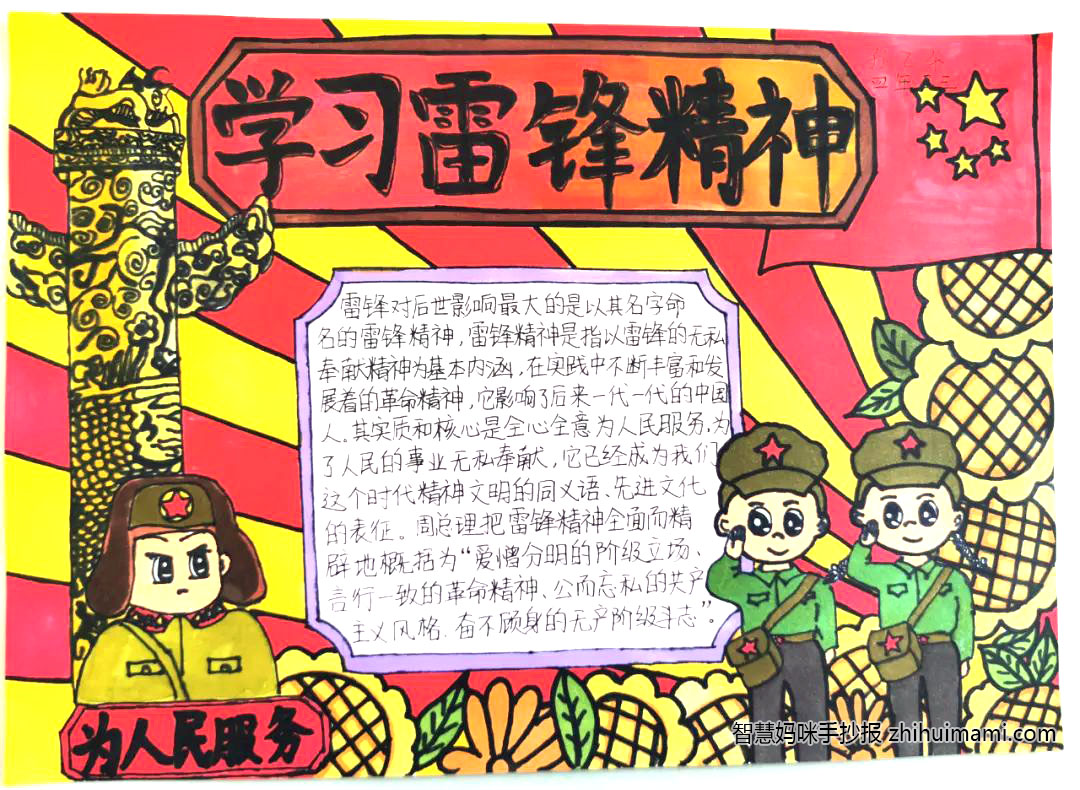 学习雷锋精神
雷锋对后世影响最大的是以其名字命
名的雷锋精神，雷锋精神是指以雷锋的无私
奉献精神为基本内涵，在实践中不断丰富和发
展着的革命精神，它影响了后来一代一代的中国
人。其实质和核心是全心全意为人民服务，为
了人民的事业无私奉献，它已经成为我们
这个时代精神文明的同义语、先进文化
的表征。周总理把雷锋精神全面而精
辟地概括为“爱憎分明的阶级立场、
言行一致的革命精神、公而忘私的共产
主义风格、奋不顾身的无产阶级斗志”
为人民服务
智慧妈咪手抄报 zhihuimami.com